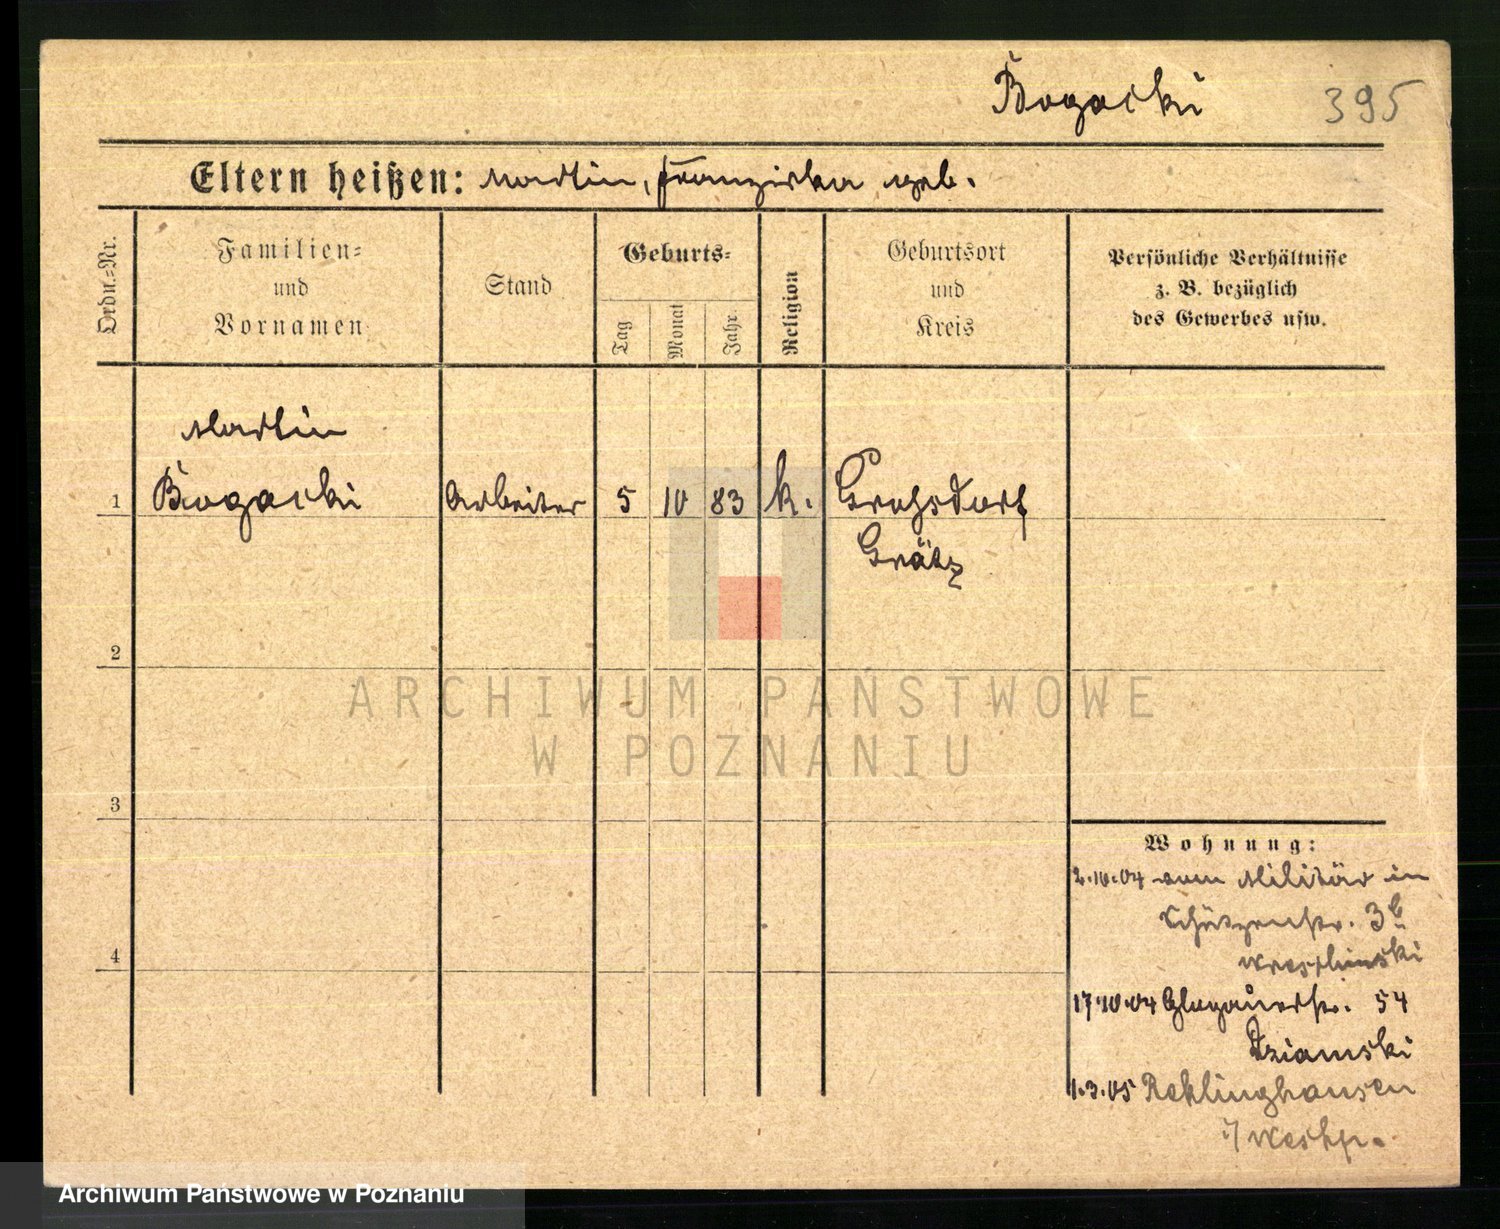 Bogacki 395
Eltern heißen: Martin, Franziska geb.
Ordn.-Nr.
Familien-
und
Vornamen
Stand
Geburts-
Tag
Monat
Jahr
Religion
Geburtsort
und
Kreis
Persönliche Verhältnisse
z. B. bezüglich
des Gewerbes usw.
Martin
1 Bogacki Arbeiter 5 10 83 k. Grohsdorf
Grätz
2
3
4
Wohnung:
2.10.04 vom Militär in
Schützenstr. 3b
17.10.04 Glogauerstr. 54
Dziamski
1.3.05 Reklinghausen
i/ Westf.
ARCHIWUM PAŃSTWOWE
W POZNANIU
Archiwum Państwowe w Poznaniu